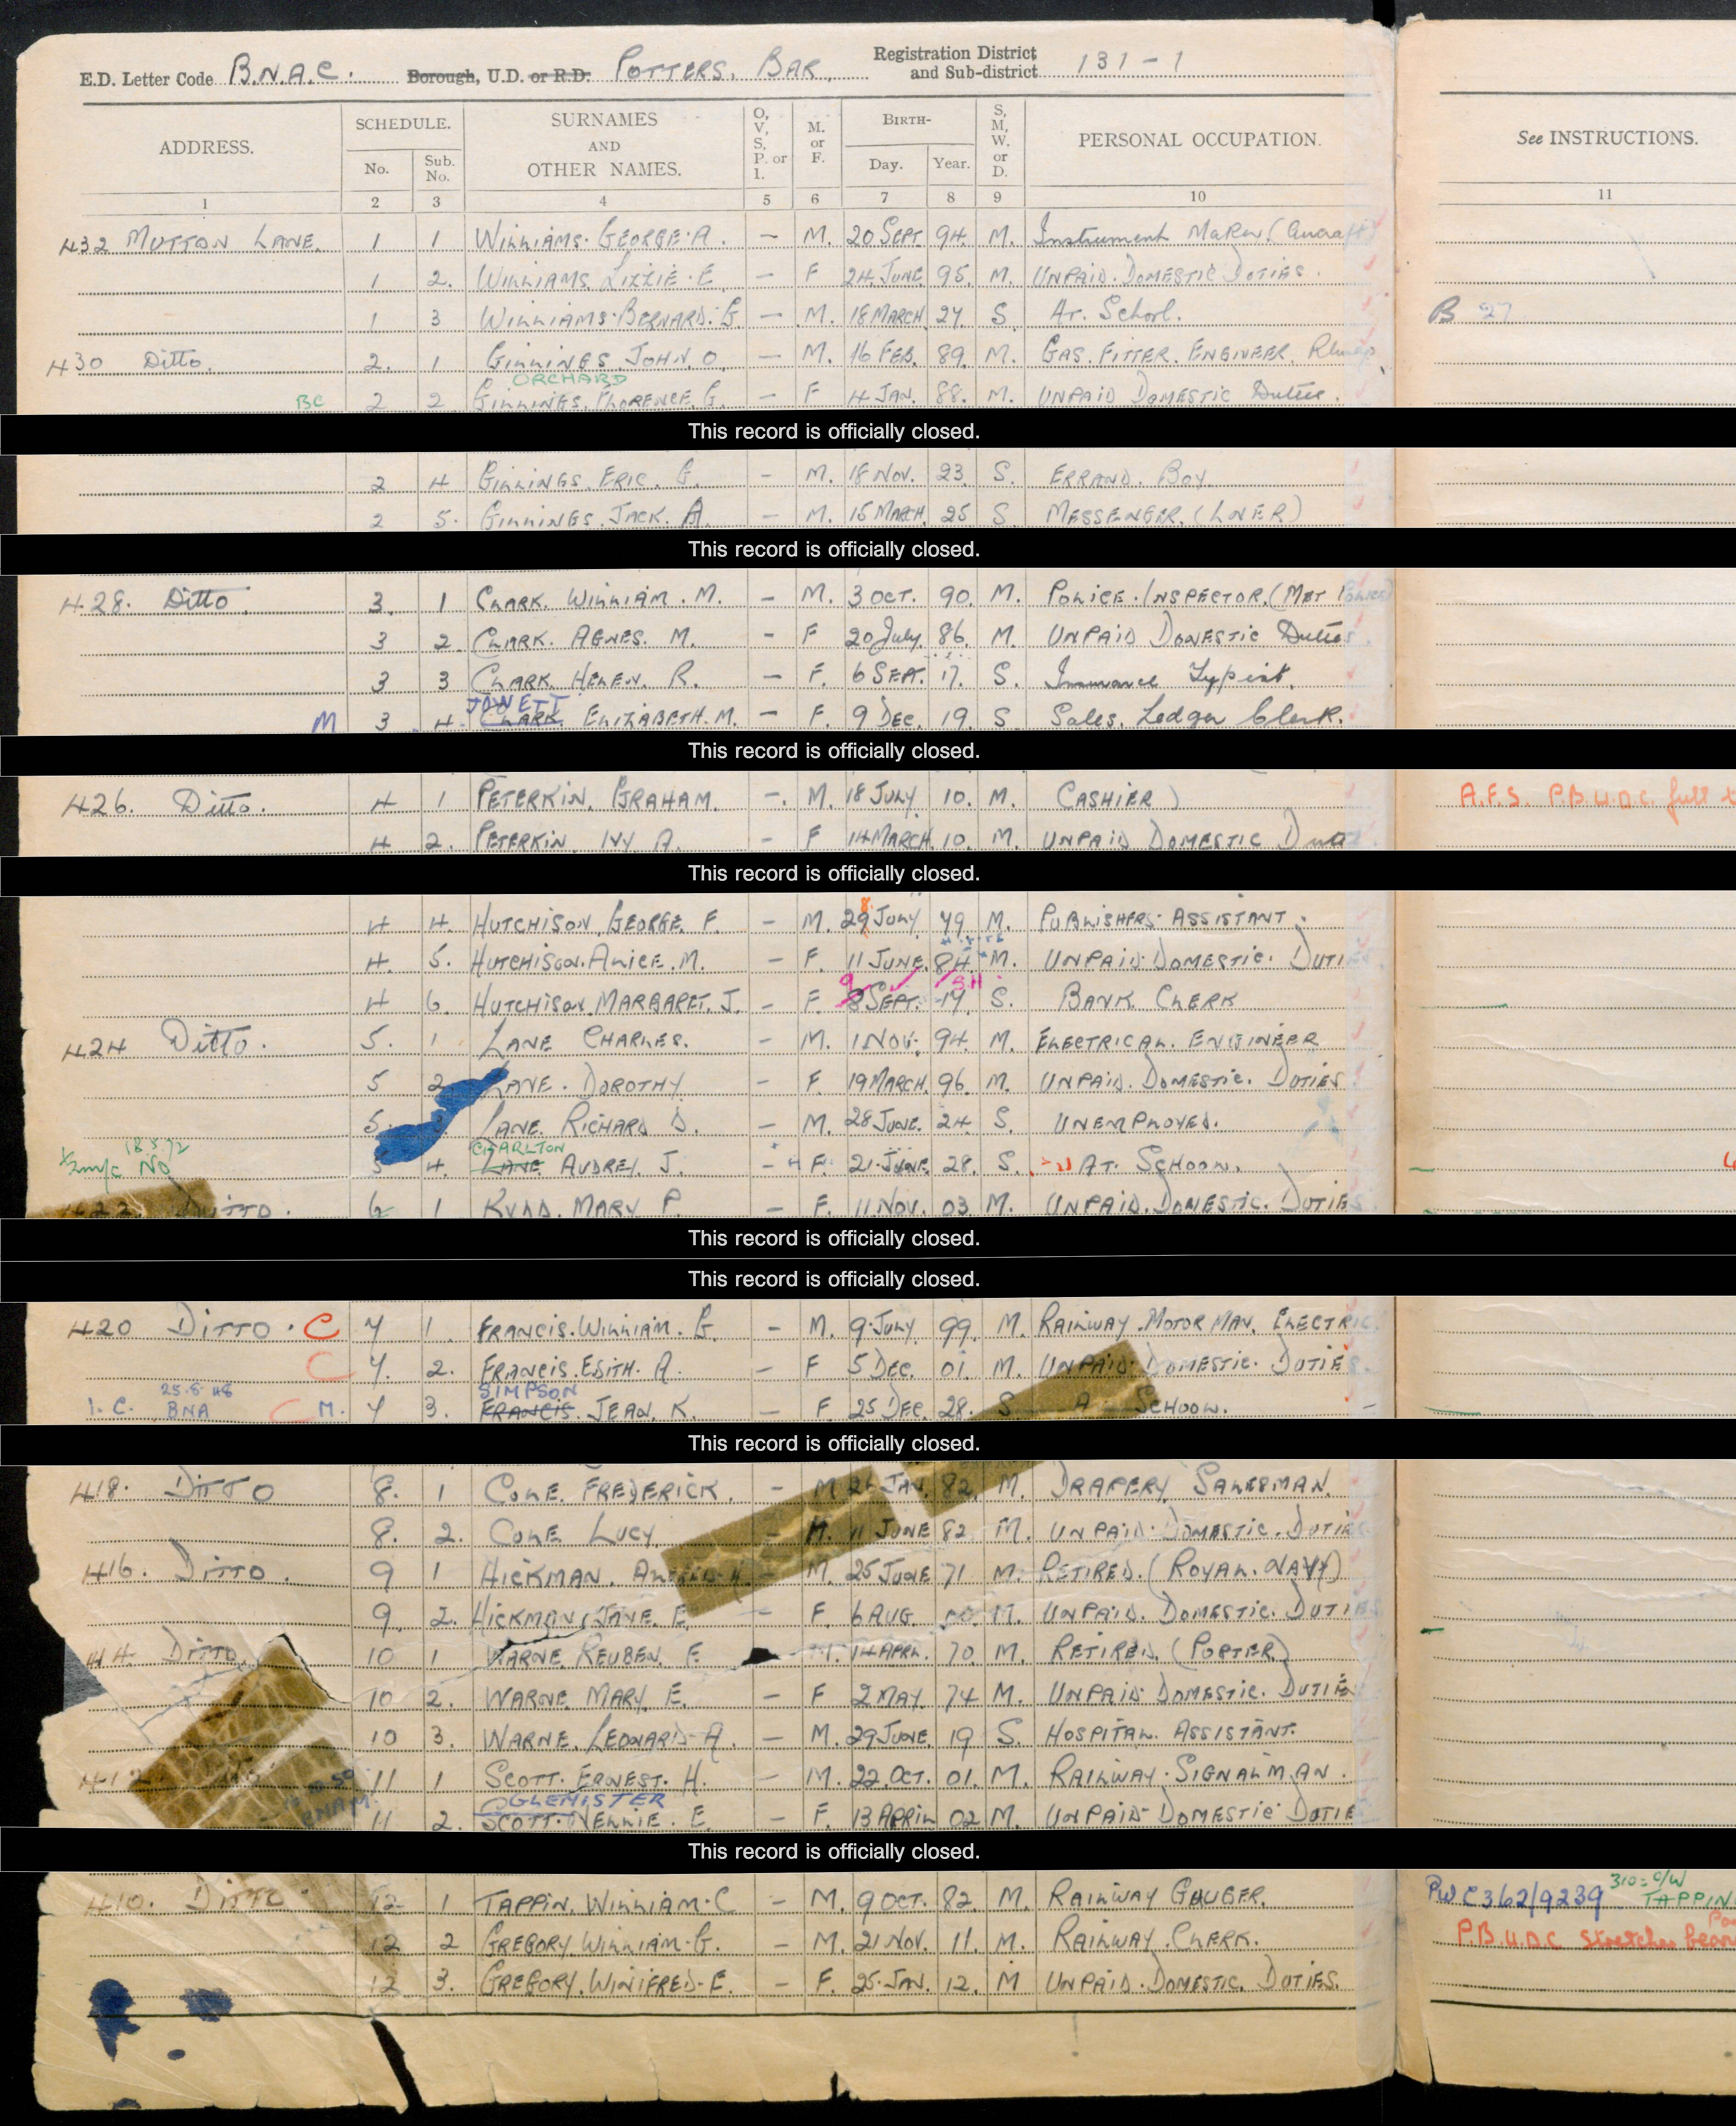 E.D. Letter Code B.N.A.C. Borough, U.D. or R.D. POTTERS. BAR. Registration District and Sub-district 131-1
ADDRESS. SCHEDULE. No. Sub. No. SURNAMES AND OTHER NAMES. O, V, S, P. or I. M. or F. BIRTH- Day. Year. S, M, W. or D. PERSONAL OCCUPATION. See INSTRUCTIONS.
1 2 3 4 5 6 7 8 9 10 11
432 MUTTON LANE. 1 1 WILLIAMS. GEORGE. A. - M. 20 SEPT 94. M. Instrument Maker (Aircraft)
1 2. WILLIAMS, LIZZIE. E - F 24. JUNE 95. M. UNPAID. DOMESTIC DUTIES.
1 3 WILLIAMS. BERNARD. G. - M. 18 MARCH 27. S. AT. School. B 27
430 Ditto. 2. 1 GILLINGS, JOHN. O. - M. 16 FEB. 89. M. GAS. FITTER. ENGINEER.
ORCHARD
BC 2 2 GILLINGS, FLORENCE. G. - F 4 JAN. 88. M. UNPAID DOMESTIC Duties.
This record is officially closed.
2 4 GILLINGS, ERIC. G. - M. 18 NOV. 23. S. ERRAND. BOY.
2 5. GILLINGS, JACK. A. - M. 15 MARCH 25 S MESSENGER. (LNER)
This record is officially closed.
428. Ditto. 3. 1 CLARK. WILLIAM. M. - M. 3 OCT. 90. M. POLICE. INSPECTOR. (MET Police)
3 2 CLARK. AGNES. M. - F 20 July. 86. M. UNPAID DOMESTIC Duties.
3 3 CLARK. HELEN. R. - F. 6 SEPT. 17. S. Insurance Typist.
JOWETT
M 3 4. CLARK. ELIZABETH. M. - F. 9 DEC. 19. S Sales. Ledger Clerk.
This record is officially closed.
426. Ditto. 4 1 PETERKIN. GRAHAM. - M. 18 JULY 10. M. CASHIER) A.F.S. P.B.U.D.C. full
4 2. PETERKIN, IVY A. - F 14 MARCH. 10. M. UNPAID DOMESTIC
This record is officially closed.
8
4 4. HUTCHISON, GEORGE. F. - M. 29 JULY 79 M. PUBLISHERS. ASSISTANT.
4. 5. HUTCHISON. ALICE. M. - F. 11 JUNE 84. M. UNPAID. DOMESTIC. DUTIES
9 SH
4 6. HUTCHISON MARGARET. J. - F. 8 SEPT. 17 S. BANK CLERK
424 Ditto. 5. 1 LANE CHARLES. - M. 1 NOV. 94. M. ELECTRICAL. ENGINEER
5 2 LANE. DOROTHY - F. 19 MARCH. 96. M. UNPAID. DOMESTIC. DUTIES
5. 3 LANE. RICHARD D. - M. 28 JUNE. 24. S. UNEMPLOYED.
18.5.72 CHARLTON
NO 5 4. LANE AUDREY. J. - F. 21. JUNE. 28. S. AT. SCHOOL.
422. DITTO. 6 1 KIDD. MARY P. - F. 11. NOV. 03. M. UNPAID. DOMESTIC. DUTIES
This record is officially closed.
This record is officially closed.
420 DITTO. C 7 1. FRANCIS. WILLIAM. G. - M. 9. JULY 99. M. RAILWAY. MOTOR MAN. ELECTRIC.
C 7. 2. FRANCIS. EDITH. A. - F 5 DEC. 01. M. UNPAID. DOMESTIC. DUTIES.
25.8.48 SIMPSON
1. C. BNA C M. 7 3. FRANCIS. JEAN. K. - F 25 DEC. 28. S A SCHOOL. -
This record is officially closed.
418. DITTO 8. 1 COLE. FREDERICK. - M 21 JAN. 82. M. DRAPERY SALESMAN.
8. 2. COLE LUCY - 11 JUNE 82 M. UNPAID. DOMESTIC. DUTIES
416. DITTO. 9 1 HICKMAN. ALFRED. H. - M. 25 JUNE 71 M. RETIRED. (ROYAL. NAVY)
9. 2. HICKMAN, JANE. E. - F. 6 AUG. M. UNPAID. DOMESTIC. DUTIES
414. DITTO. 10 1 WARNE. REUBEN. E M. 14 APRL. 70 M. RETIRED. (PORTER.)
10 2. WARNE. MARY. E. - F 2 MAY. 74 M. UNPAID DOMESTIC. DUTIES
10 3. WARNE. LEONARD. A. - M. 29 JUNE. 19 S. HOSPITAL. ASSISTANT.
412 11 1 SCOTT. ERNEST. H. - M. 22. OCT. 01. M. RAILWAY. SIGNALMAN.
GLEMISTER
11 2. SCOTT. NELLIE. E - F. 13 APRIL 02 M. UNPAID DOMESTIC DUTIE
This record is officially closed.
410. DITTO. 12 1 TAPPIN. WILLIAM. C - M. 9 OCT. 82. M. RAILWAY GAUGER. P.W. C362/9239 310= C/W TAPPIN
12 2 GREGORY. WILLIAM. G. - M. 21 NOV. 11. M. RAILWAY. CLERK. P.B.U.D.C Stretcher
12 3. GREGORY. WINIFRED. E. - F. 25. JAN. 12. M UNPAID. DOMESTIC. DUTIES.